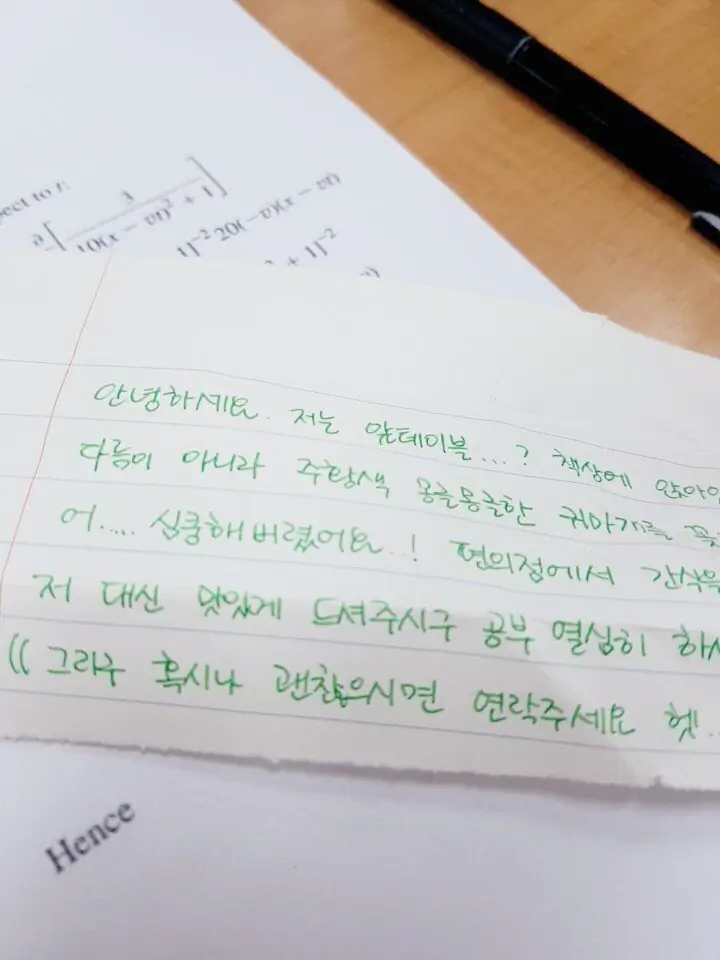 ect to t:
3
10(x − vt)² + 1
1]⁻² 20(−v)(x − vt)
+ 1]⁻²
안녕하세요. 저는 앞테이블...? 책상에 앉아
다름이 아니라 주황색 몽글몽글한 귀마개를
어..... 심쿵해버렸어요..! 편의점에서 간식을
저 대신 맛있게 드셔주시구 공부 열심히 하
(( 그라구 혹시나 괜찮으시면 연락주세요 헷..
Hence